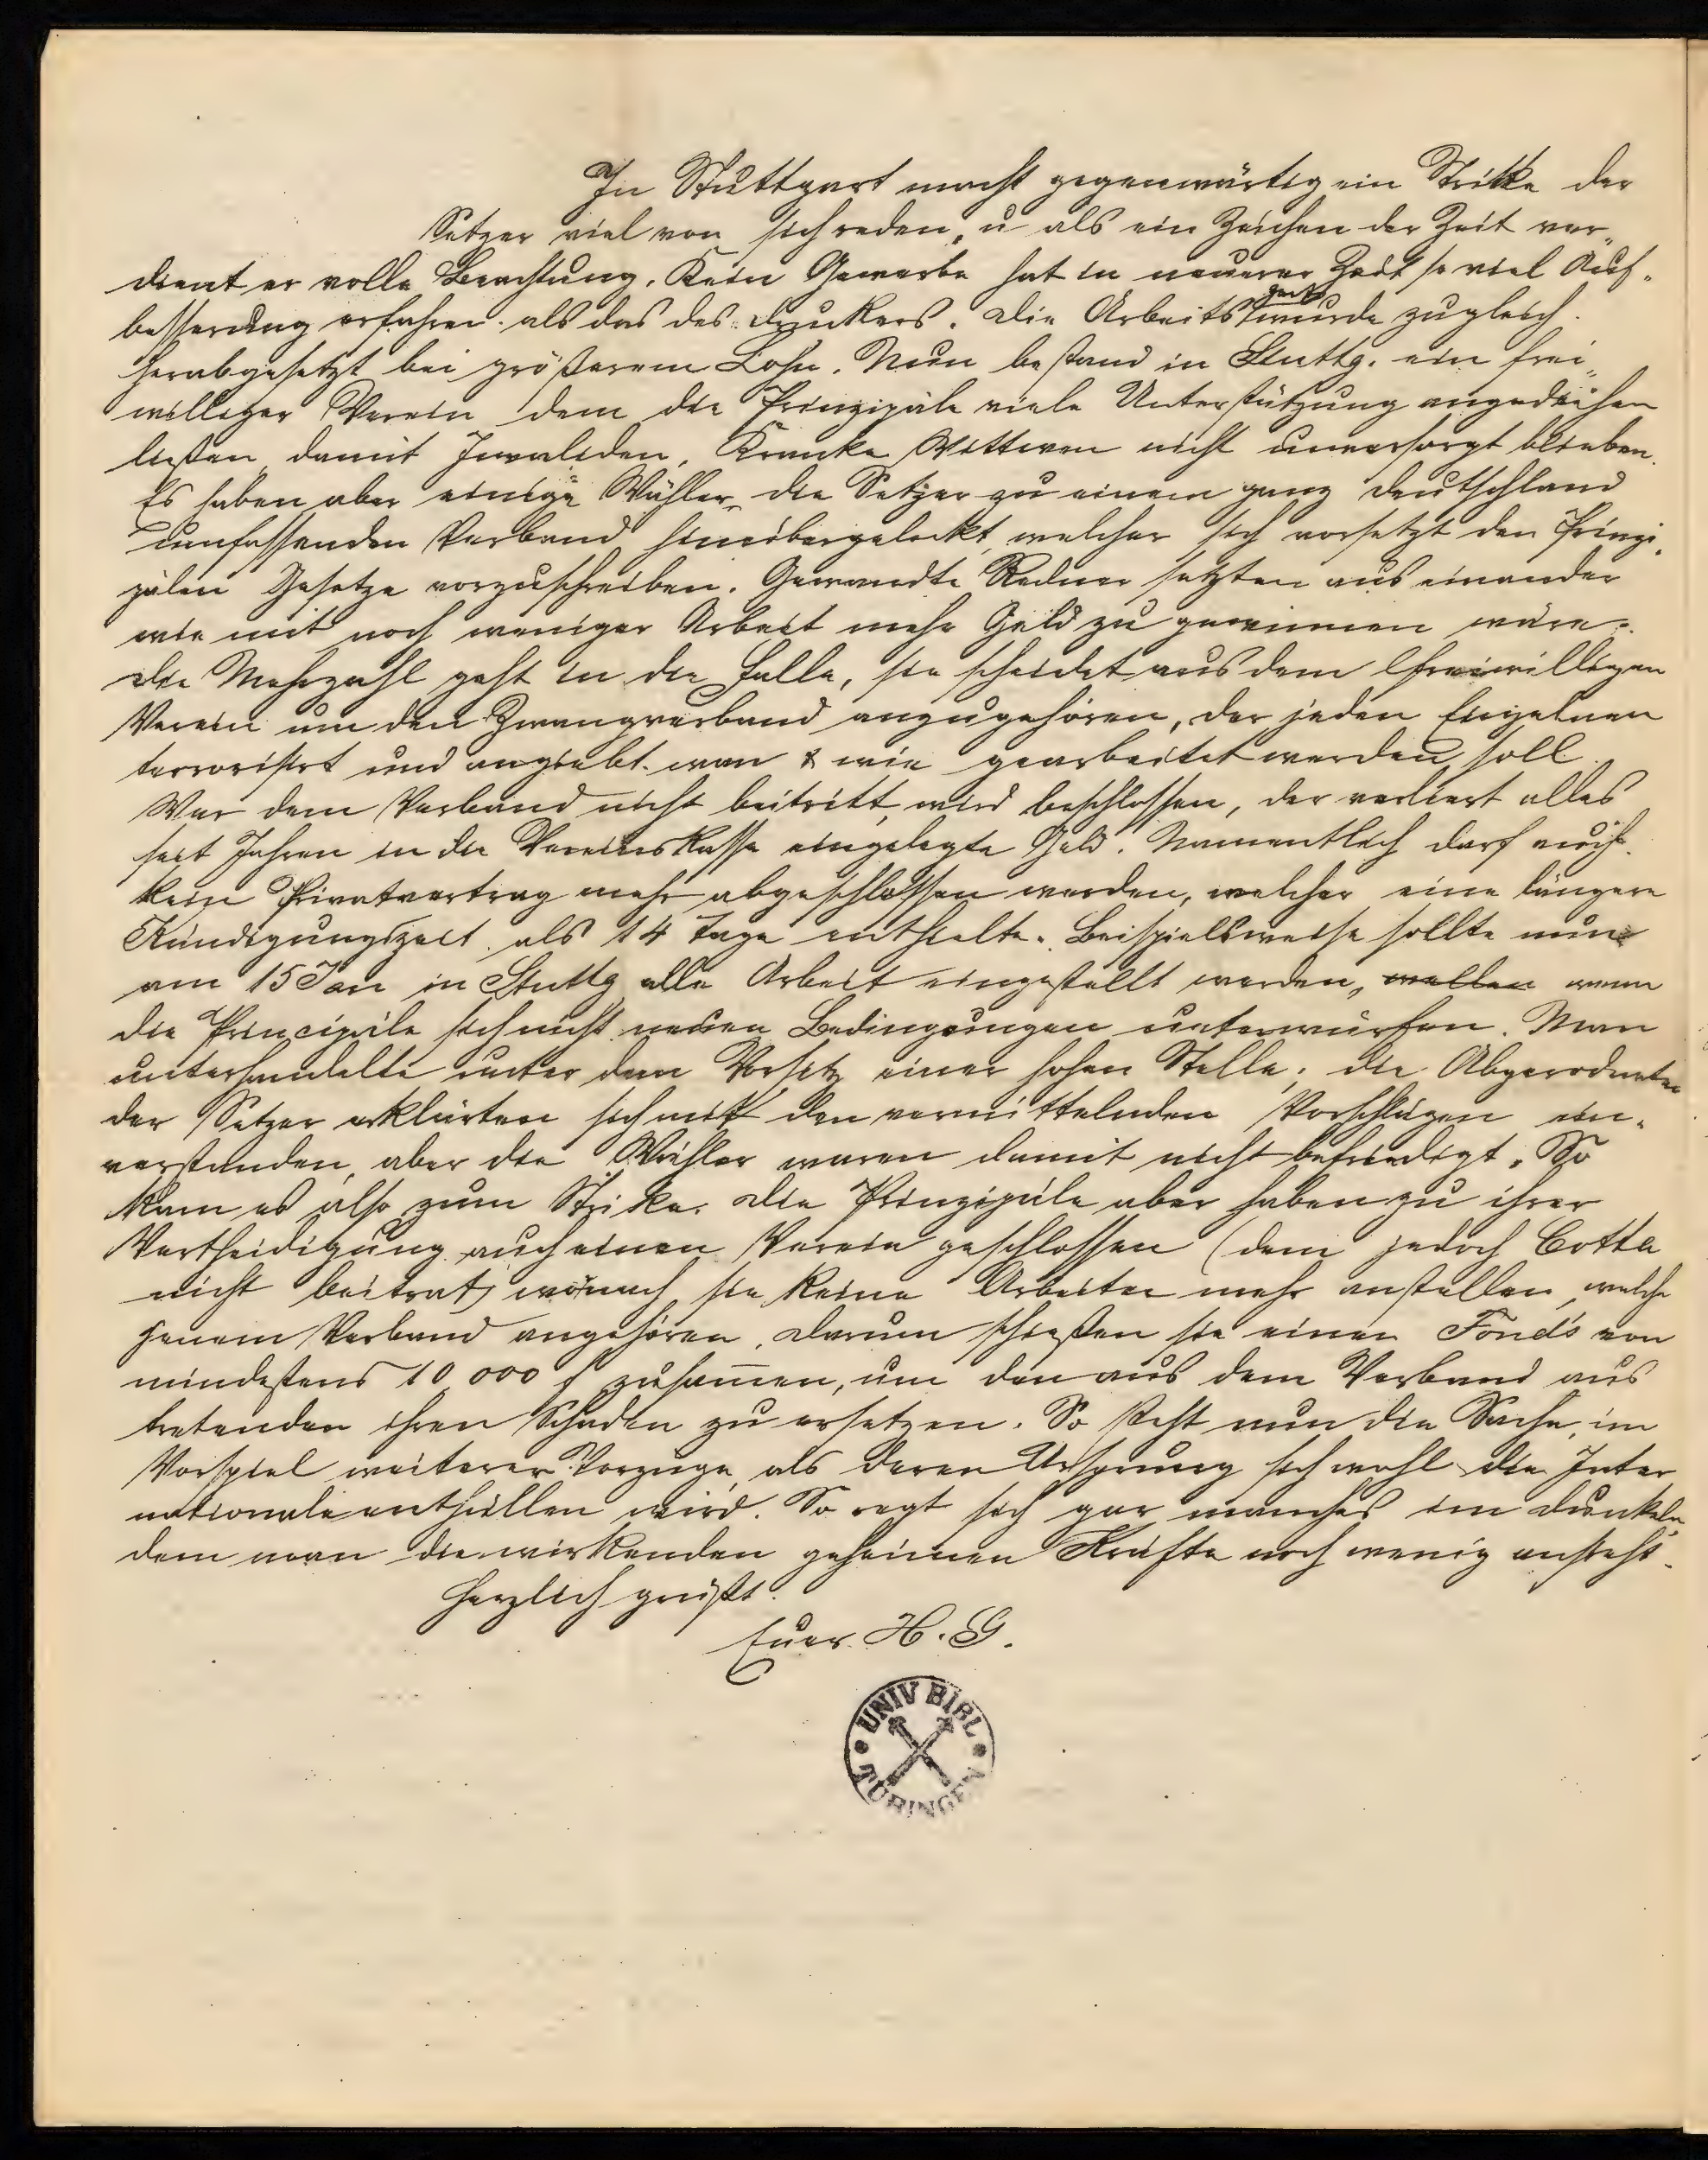 In Stuttgart macht gegenwärtig ein Strike der
Setzer viel von sich reden, u als ein Zeichen der Zeit ver-
dient er volle Beachtung. Kein Gewerbe hat in neuerer Zeit so viel Auf-
besserung erfahren als das des Druckers. Die Arbeitszeit wurde zugleich
herabgesetzt bei größerem Lohn. Nun bestand in Stuttg. ein frei-
williger Verein dem die Prinzipale viele Unterstützung angedeihen
ließen, damit Invaliden, Kranke Wittwen nicht unversorgt blieben.
Es haben aber einige Wühler die Setzer zu einem ganz Deutschland
umfassenden Verband hinübergelockt, welcher sich vorsetzt den Prinzi-
palen Gesetze vorzuschreiben. Gewandte Redner setzten aus einander
wie mit noch weniger Arbeit mehr Geld zu gewinnen wäre.
Die Mehrzahl geht in die Falle, sie scheidet aus dem freiwilligen
Verein um dem Zwangverband anzugehören, der jeden Einzelnen
terrorisirt und angiebt wan & wie gearbeitet werden soll.
Wer dem Verband nicht beitritt, wird beschlossen, der verliert alles
seit Jahren in die Vereinskasse eingelegte Geld. Namentlich darf auch
kein Privatvertrag mehr abgeschlossen werden, welcher eine längere
Kündigungszeit als 14 Tage enthielte. Beispielsweise sollte nun
am 15 Jan in Stuttg alle Arbeit eingestellt werden, wenn
die Principale sich nicht neuen Bedingungen unterwürfen. Man
unterhandelte unter dem Vorsitz einer hohen Stelle; die Abgeordneten
der Setzer erklärten sich mit den vermittelnden Vorschlägen ein-
verstanden, aber die Wühler waren damit nicht befriedigt. So
kam es also zum Strike. Die Prinzipale aber haben zu ihrer
Vertheidigung auch einen Verein geschlossen (dem jedoch Cotta
nicht beitrat) wonach sie keine Arbeiter mehr anstellen, welche
jenem Verband angehören. Darum schießen sie einen Fonds von
mindestens 10 000 f zusam̅en, um den aus dem Verband aus
tretenden ihren Schaden zu ersetzen. So steht nun die Sache, im
Vorspiel weiterer Vorzüge, als deren Ursprung sich wohl die Inter
nationale enthüllen wird. So regt sich gar manches im Dunkeln
dem man die wirkenden geheimen Kräfte noch wenig ansieht.
Herzlich grüßt
Euer H. G.
UNIV BIBL
TÜBINGEN